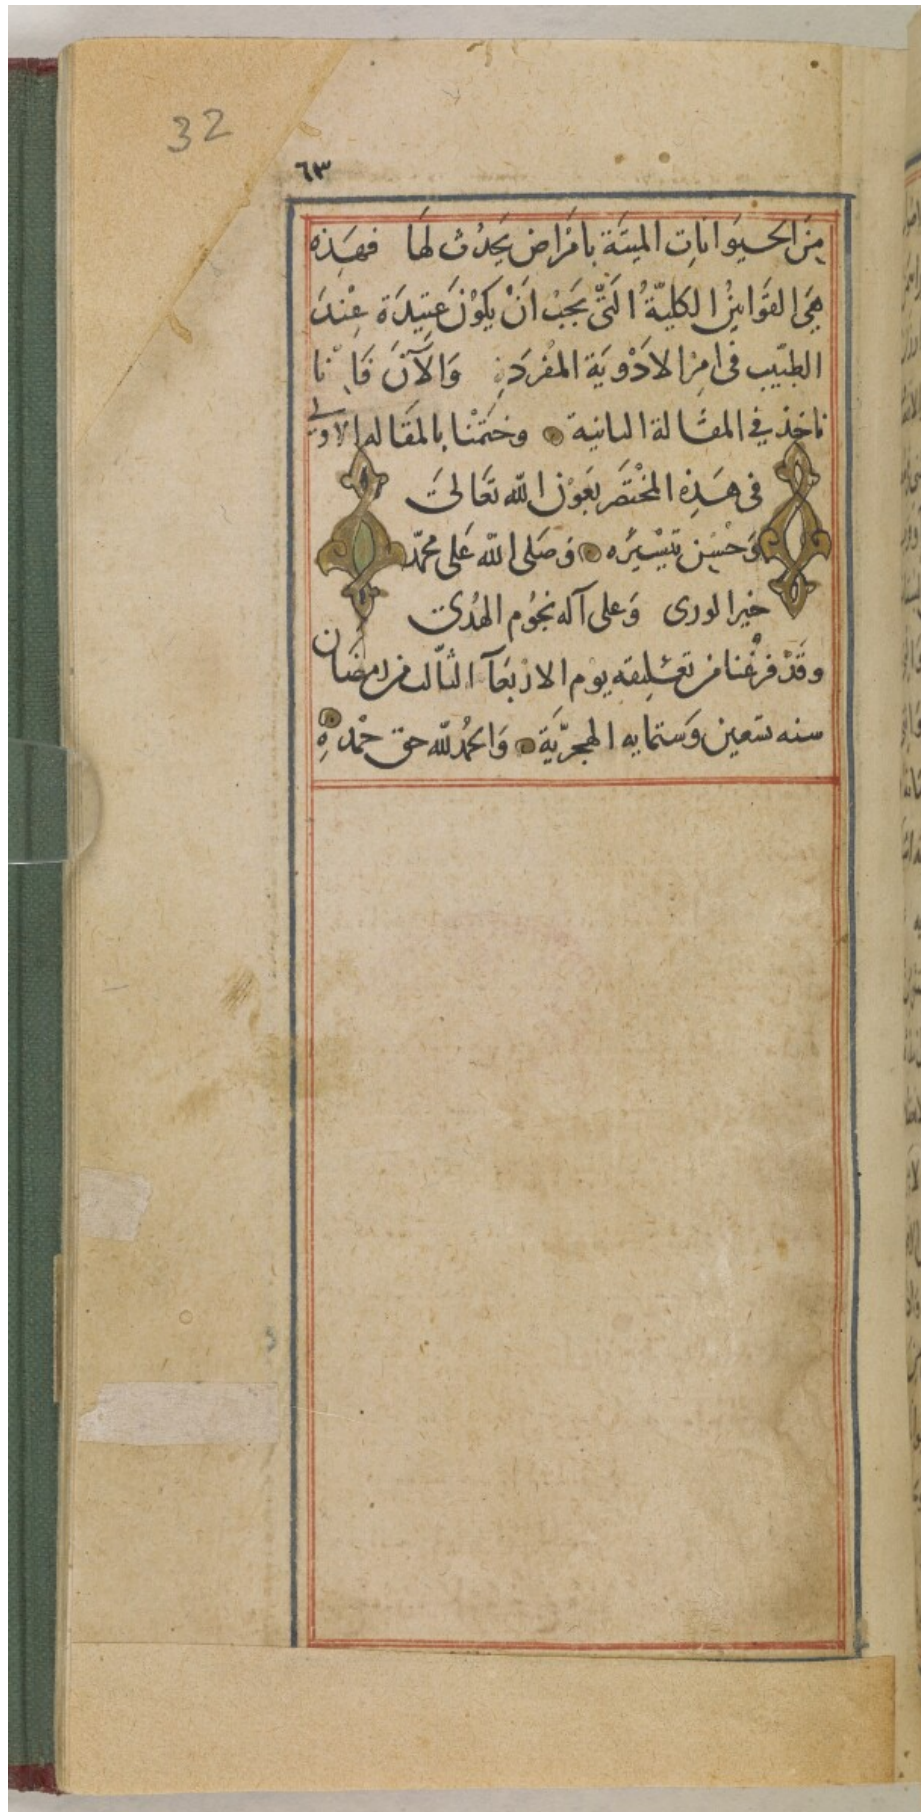 32
٦٣
مِنَ الحَيَوَانَاتِ الميتَة بامْرَاض يَحدُث لهَا فهَذِه
هِيَ القوَانينُ الكليّةُ التَّى يَجبُ انْ يكوْنَ عَتِيدَة عِنْدَ
الطبّيب فى امرْ الادْويَة المفرَدَةِ وَالآنَ فَاِنّا
ناخذ في المقالة الثانية وختمْنا بالمقَاله الاولي
فى هَذِه المخْتصَر بعَوْن الله تعَالىَ
وَحُسْن تيَسْيرُه وَصَلى الله عَلى محمّد
خيرالورى وَعلى آله نجُوم الهدُى
وقَدْ فرغْنا من تعْليقه يوم الاربَعَآ الثالث من رمضَان
سنه تسعين وَستمايه الهجريَّة وَالحمُد لله حق حمْدهِ